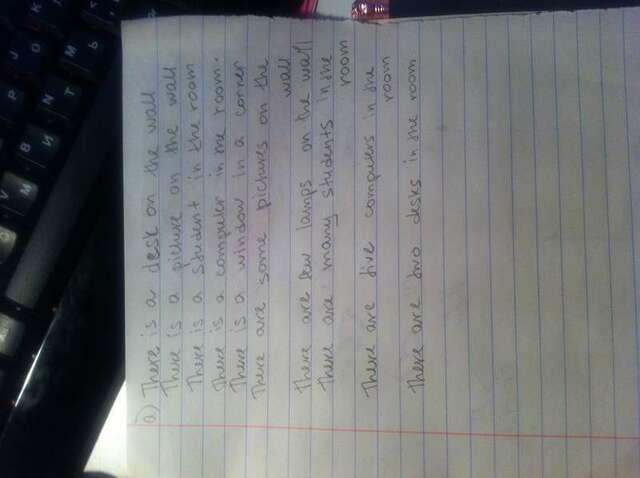 a) There is a desk on the wall
There is a picture on the wall
There is a student in the room
There is a computer in the room.
There is a window in a corner
There are some pictures on the
wall
There are few lamps on the wall
There are many students in the
room
There are five computers in the
room
There are two desks in the room